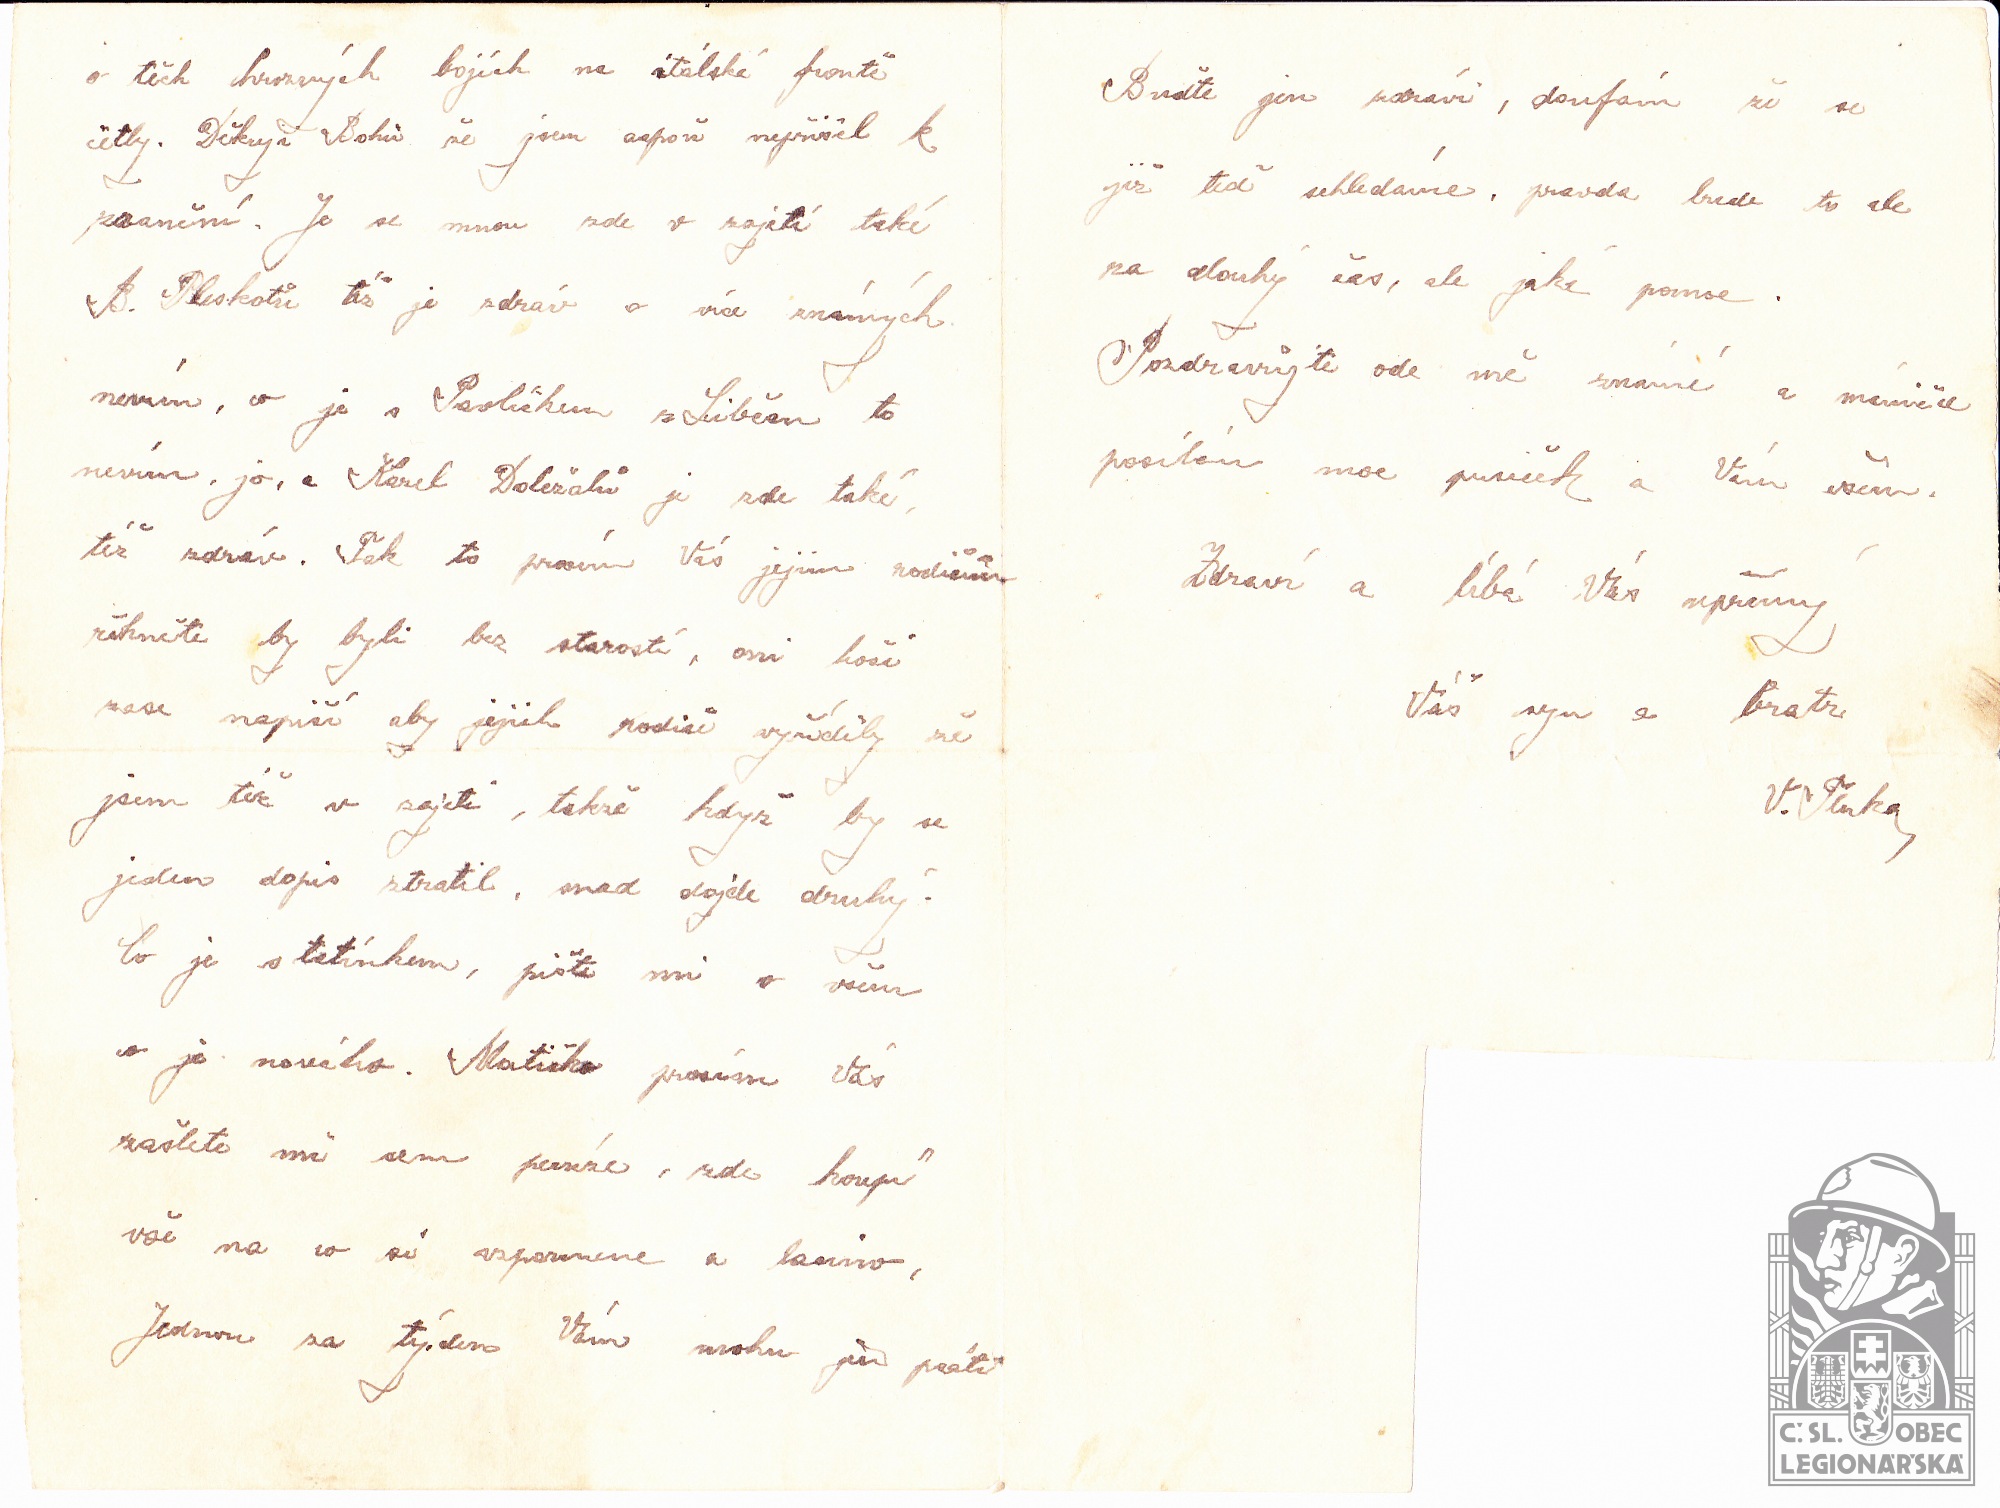 o těch hrozných bojích na itálské frontě
četly. Děkuji Bohu že jsem aspoň nepřišel k
poranění. Je se mnou zde v zajetí také
B. Pleskotů též je zdráv o více známých
nevím, co je s Pavlíčkem z Libčan to
nevím, jo, a Karel Doležalů je zde také,
též zdráv. Tak to prosím Vás jejim rodičům
řekněte by byli bez starostí, oni hoši
zase napíší aby jejich rodiče vyřídily že
jsem též v zajetí, takže když by se
jeden dopis ztratil, snad dojde druhý.
Co je s tatínkem, pište mi o všem
co je nového. Matičko prosím Vás
zašlete mě sem peníze, zde koupí
vše na co si vzpomene a lacino,
Jednou za týden Vám mohu jen psáti
Buďte jen zdrávi, doufám že se
již teď shledáme, pravda bude to ale
za dlouhý čas, ale jaká pomoc.
Pozdravůjte ode mě známé a mámince
posílám moc pusiček a Vám všem.
Zdraví a líbá Vás upřímný
Váš syn a bratr
V. Fluka
Č. SL. OBEC
LEGIONÁŘSKÁ